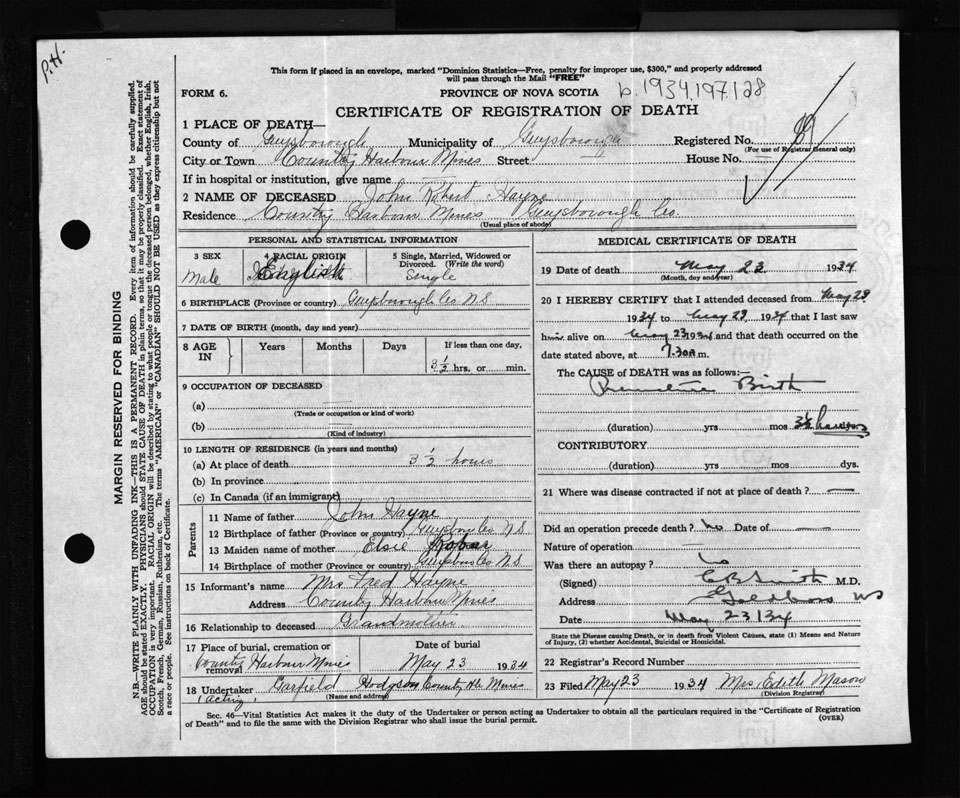 P.H.
This form if placed in an envelope, marked "Dominion Statistics—Free, penalty for improper use, $300," and properly addressed
will pass through the Mail "FREE"
FORM 6.
PROVINCE OF NOVA SCOTIA
b.1934.197128
CERTIFICATE OF REGISTRATION OF DEATH
1 PLACE OF DEATH—
County of Guysborough Municipality of Guysborough Registered No.
(For use of Registrar General only)
City or Town Country Harbour Mines Street — House No. —
If in hospital or institution, give name —
2 NAME OF DECEASED John Robert Hayne
Residence Country Harbour Mines Guysborough Co.
(Usual place of abode)
PERSONAL AND STATISTICAL INFORMATION
3 SEX
Male
4 RACIAL ORIGIN
English
5 Single, Married, Widowed or
Divorced. (Write the word)
Single
6 BIRTHPLACE (Province or country) Guysborough Co N.S
7 DATE OF BIRTH (month, day and year)
8 AGE IN
Years Months Days
If less than one day,
3½ hrs. or min.
9 OCCUPATION OF DECEASED
(a)
(Trade or occupation or kind of work)
(b)
(Kind of industry)
10 LENGTH OF RESIDENCE (in years and months)
(a) At place of death 3½ hours
(b) In province
(c) In Canada (if an immigrant)
Parents
11 Name of father John Hayne
12 Birthplace of father (Province or country) Guysboro Co N.S
13 Maiden name of mother Elsie
14 Birthplace of mother (Province or country) Guysboro Co N.S
15 Informant's name Mrs Fred Hayne
Address Country Harbour Mines
16 Relationship to deceased Grandmother
17 Place of burial, cremation or
removal Country Harbour Mines May 23 1934
18 Undertaker Garfield Hodgson Country Hr. Mines
(Name and address)
(acting)
MEDICAL CERTIFICATE OF DEATH
19 Date of death May 23 1934
(Month, day and year)
20 I HEREBY CERTIFY that I attended deceased from May 23
1934 to May 23 1934 that I last saw
him alive on May 23 1934 and that death occurred on the
date stated above, at 7.30 a m.
The CAUSE of DEATH was as follows:—
Premature Birth
(duration) yrs mos 3½ hours
CONTRIBUTORY
(duration) yrs mos dys.
21 Where was disease contracted if not at place of death? —
Did an operation precede death? No Date of —
Nature of operation —
Was there an autopsy? No
(Signed) C B Smith M.D.
Address Goldboro NS
Date May 23 34
State the Disease causing Death, or in death from Violent Causes, state (1) Means and Nature
of Injury, (2) whether Accidental, Suicidal or Homicidal.
22 Registrar's Record Number
23 Filed May 23 1934 Mrs. Edith Mason
(Division Registrar)
Sec. 46—Vital Statistics Act makes it the duty of the Undertaker or person acting as Undertaker to obtain all the particulars required in the "Certificate of Registration
of Death" and to file the same with the Division Registrar who shall issue the burial permit. (OVER)
MARGIN RESERVED FOR BINDING
N.B.—WRITE PLAINLY WITH UNFADING INK—THIS IS A PERMANENT RECORD. Every item of information should be carefully supplied.
AGE should be stated EXACTLY. PHYSICIANS should STATE CAUSE OF DEATH in plain terms, so that it may be properly classified. Exact statement of
OCCUPATION is very important. RACIAL ORIGIN will be described by stating to what people or tongue the deceased person belonged, whether English, Irish,
Scotch, French, German, Russian, Ruthenian, etc. The terms "AMERICAN" or "CANADIAN" SHOULD NOT BE USED as they express citizenship but not
a race or people. See instructions on back of Certificate.